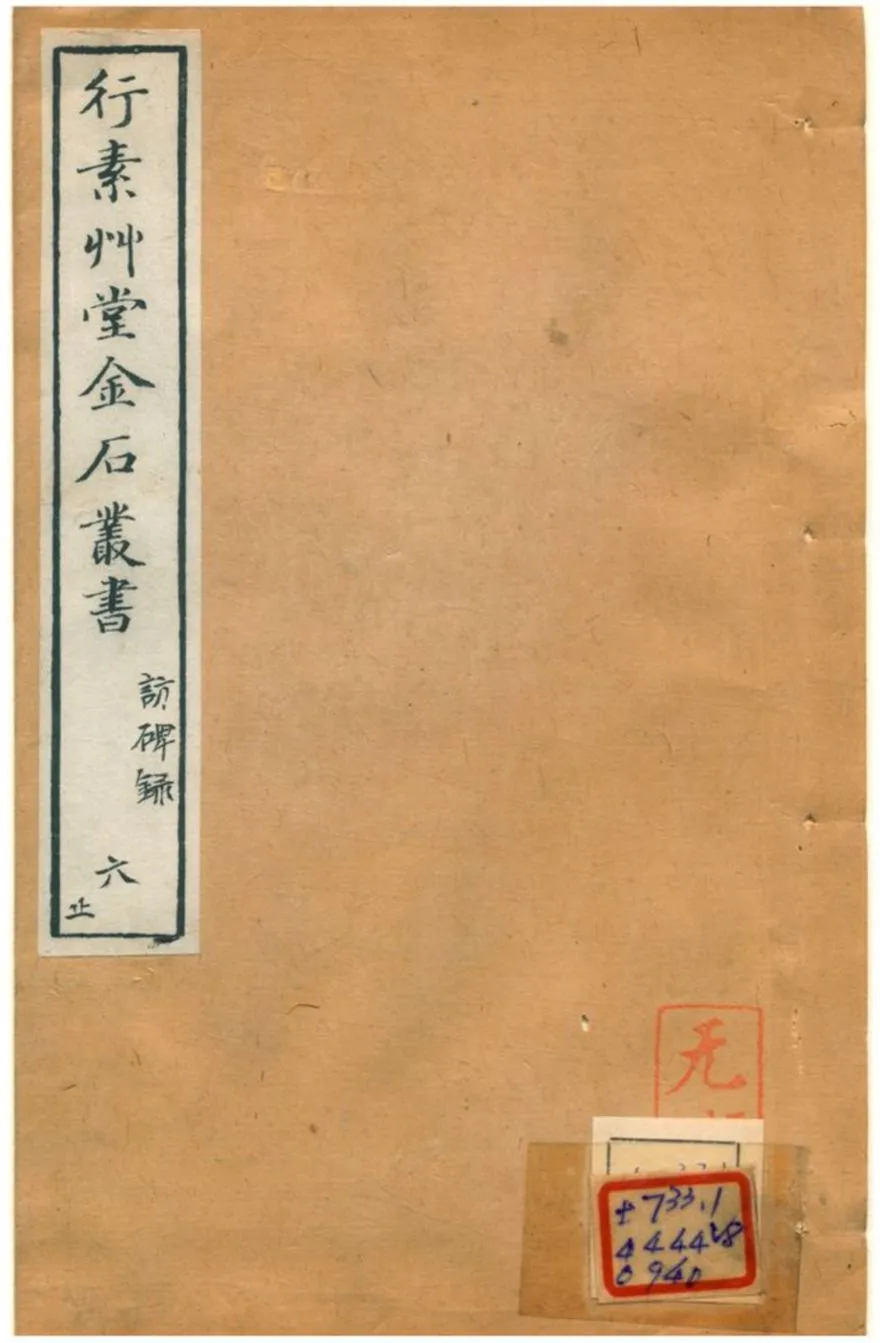 行素艸堂金石叢書
訪碑録
六
止
无
+733.1
4444
0940